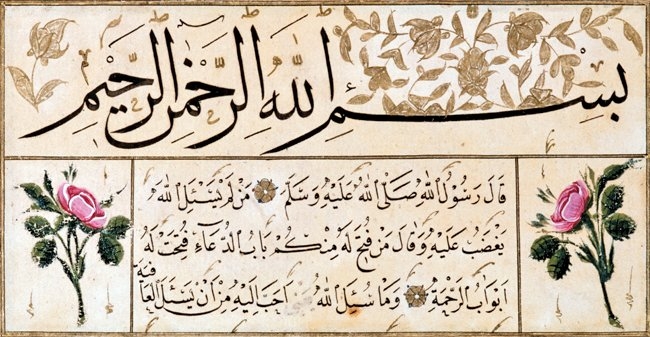 بِسْمِ اللّٰهِ الرَّحْمٰنِ الرَّحِيمِ
قَالَ رَسُولُ اللّٰهِ صَلَّى اللّٰهُ عَلَيْهِ وَسَلَّمَ مَنْ لَمْ يَسْئَلِ اللّٰهَ
يَغْضَبْ عَلَيْهِ وَقَالَ مَنْ فُتِحَ لَهُ مِنْكُمْ بَابُ الدُّعَاءِ فُتِحَتْ لَهُ
اَبْوَابُ الرَّحْمَةِ وَمَا سُئِلَ اللّٰهُ اَحَبَّ اِلَيْهِ مِنْ اَنْ يُسْئَلَ الْعَافِيَةَ